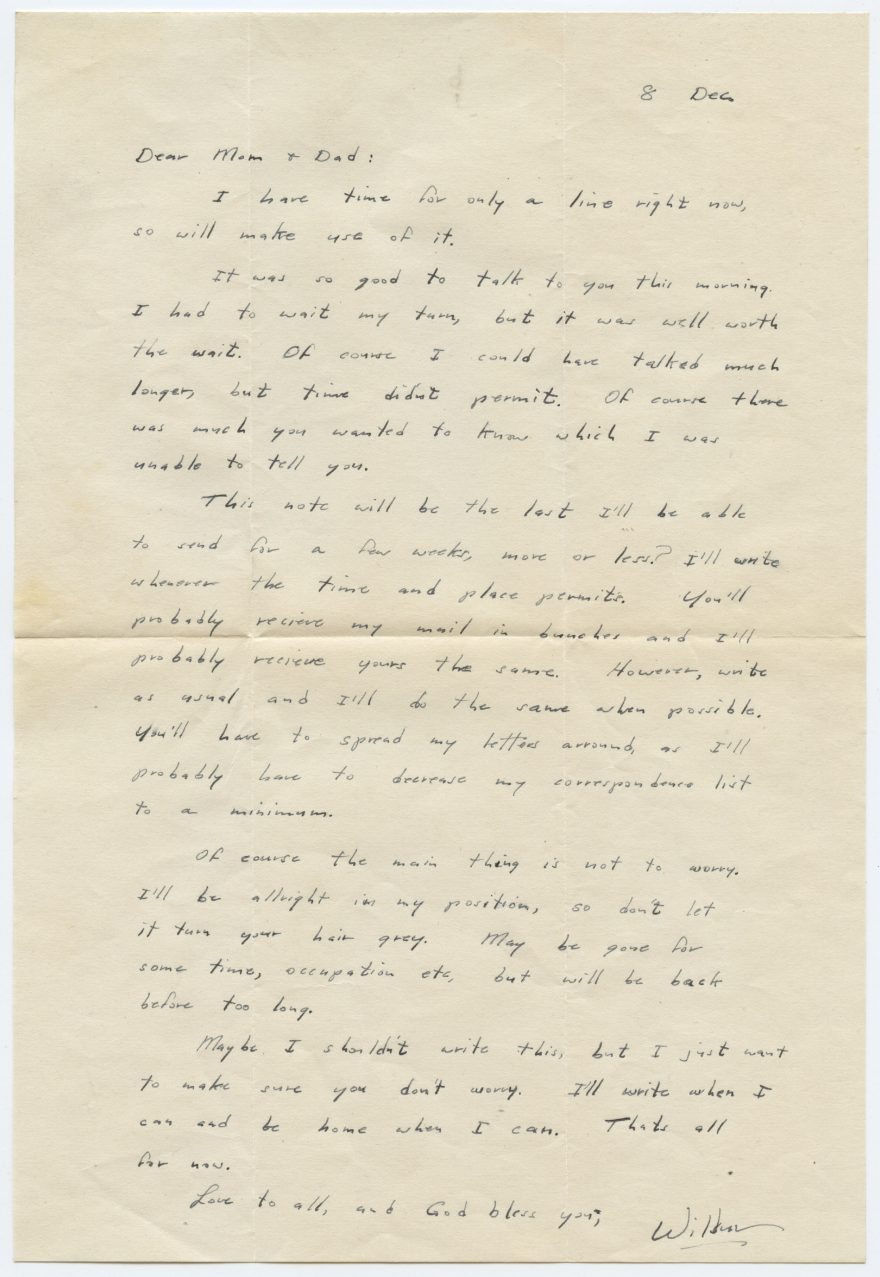 8 Dec
Dear Mom + Dad:
I have time for only a line right now,
so will make use of it.
It was so good to talk to you this morning.
I had to wait my turn, but it was well worth
the wait. Of course I could have talked much
longer, but time didnt permit. Of course there
was much you wanted to know which I was
unable to tell you.
This note will be the last I'll be able
to send for a few weeks, more or less? I'll write
whenever the time and place permits. You'll
probably recieve my mail in bunches and I'll
probably recieve yours the same. However, write
as usual and I'll do the same when possible.
You'll have to spread my letters arround, as I'll
probably have to decrease my correspondence list
to a minimum.
Of course the main thing is not to worry.
I'll be allright in my position, so don't let
it turn your hair grey. May be gone for
some time, occupation etc, but will be back
before too long.
Maybe I shouldn't write this, but I just want
to make sure you don't worry. I'll write when I
can and be home when I can. Thats all
for now.
Love to all, and God bless you,
Wilbur